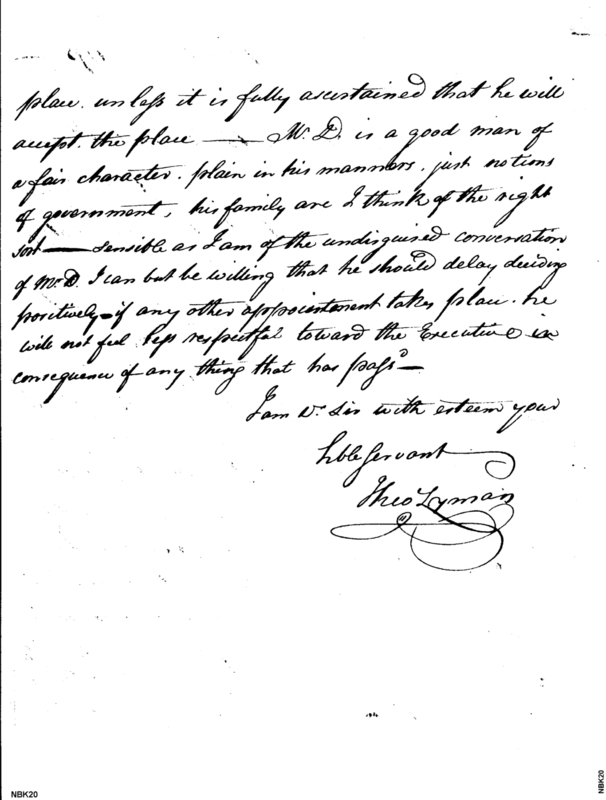 place. unless it is fully ascertained that he will
accept. the place — Mr. D. is a good man of
a fair character. plain in his manners. just notions
of government, his family are I think of the right
sort — sensible as I am of the undisguised conversation
of Mr. D. I can but be willing that he should delay deciding
positively – if any other appointment takes place. he
will not feel less respectful toward the Executive in
consequence of any thing that has pass'd —
I am Dr. Sir with esteem your
hble Servant
Theo Lyman
NBK20
NBK20